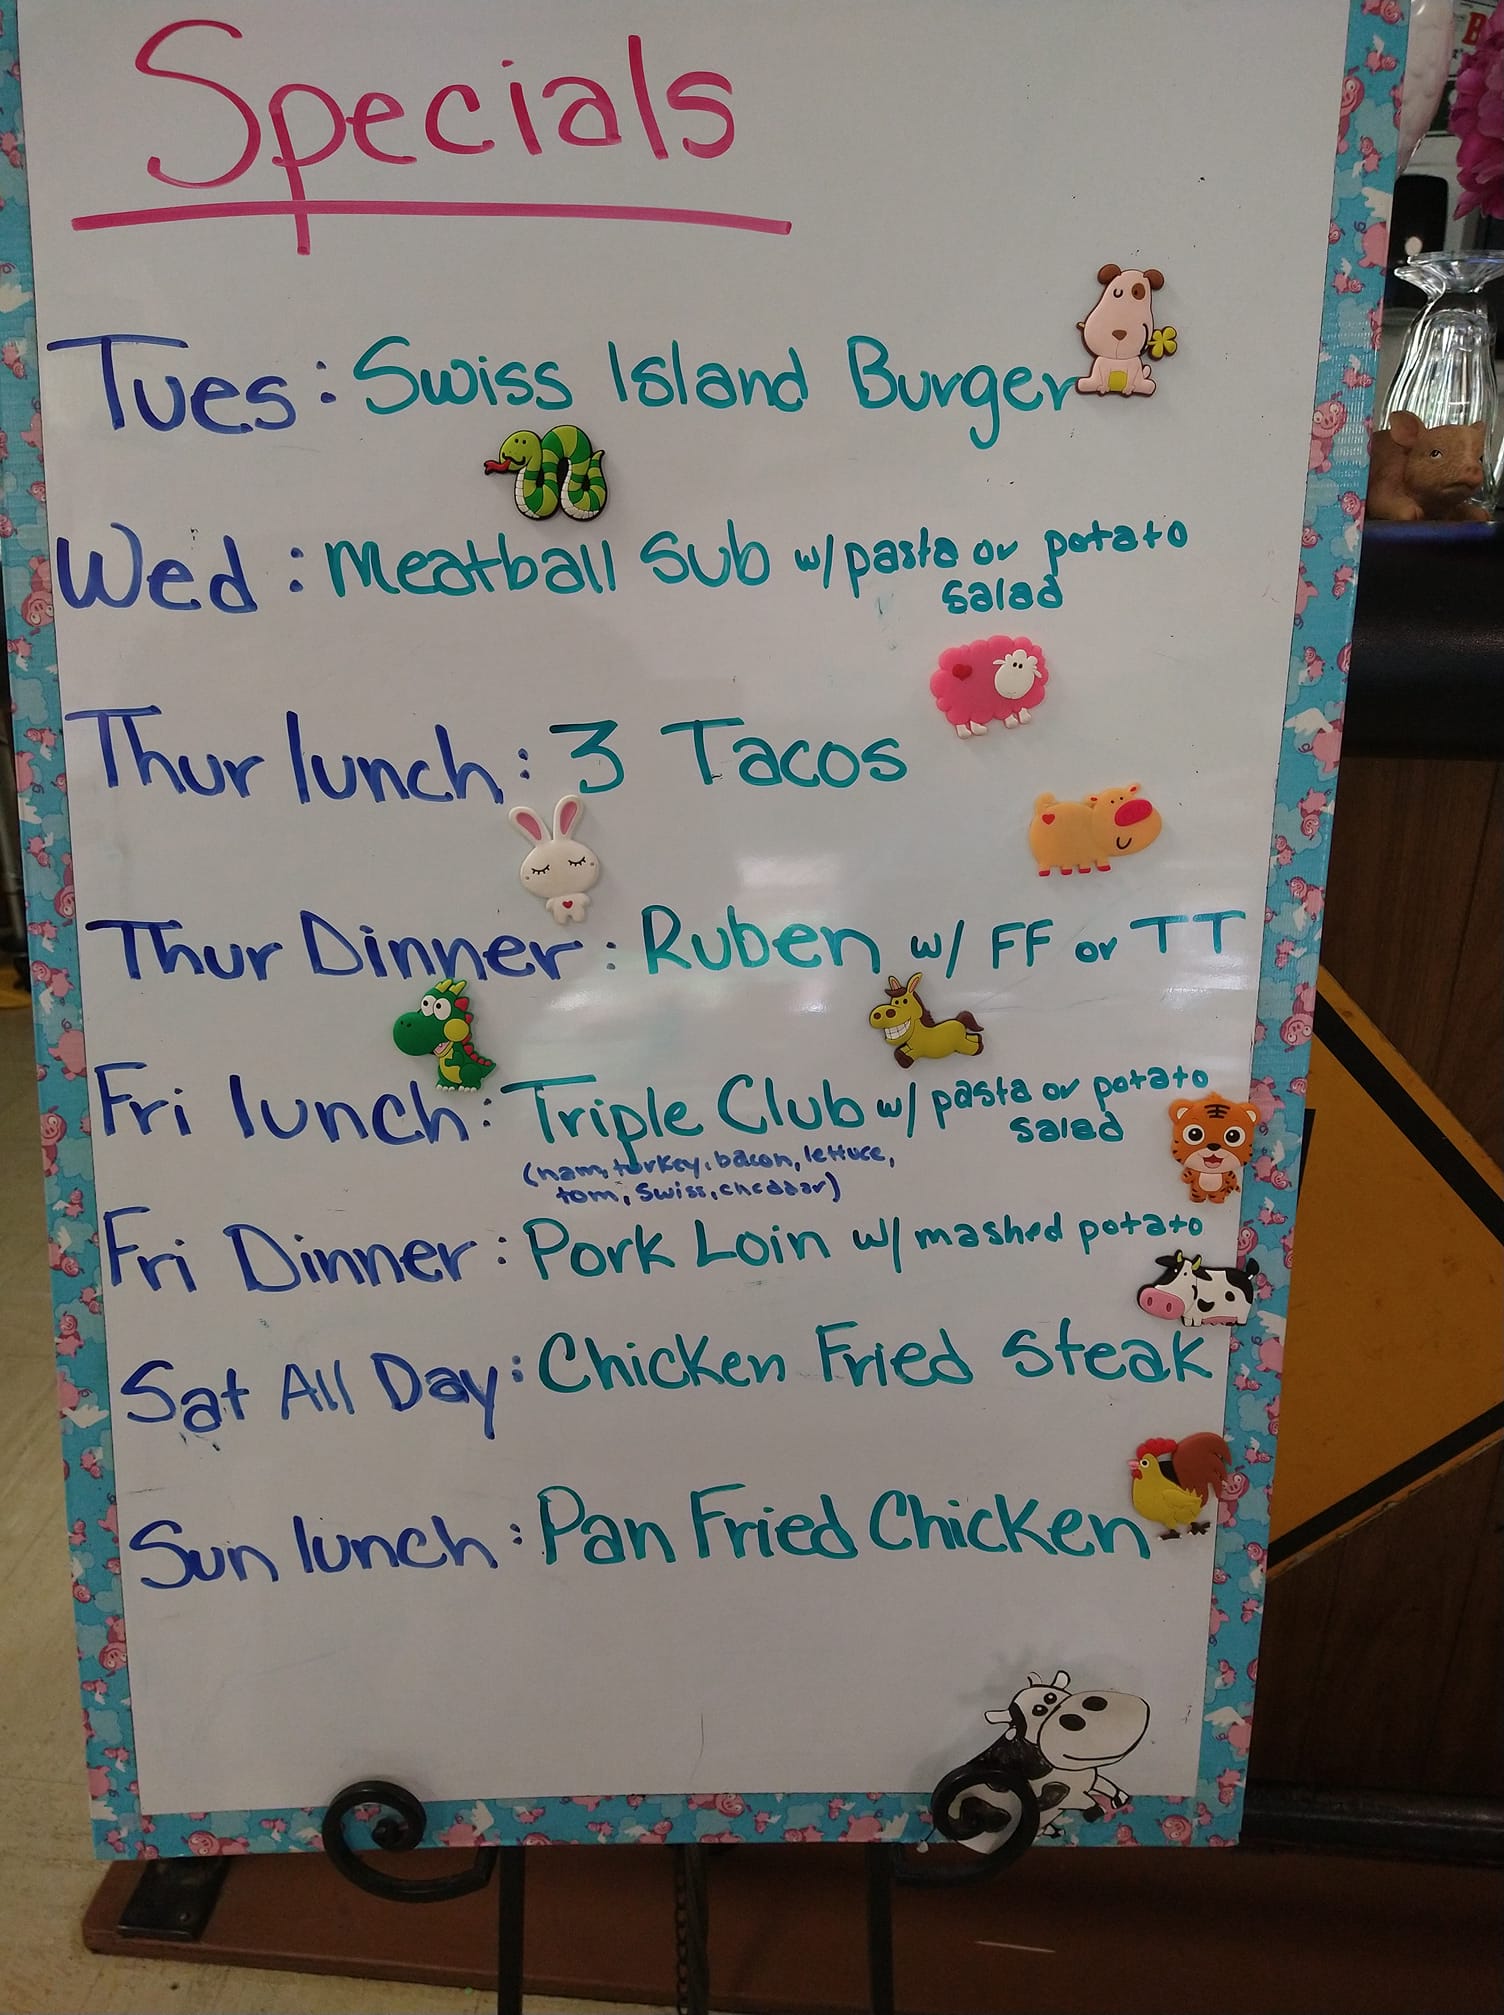 Specials
Tues: Swiss Island Burger
Wed: Meatball Sub w/ pasta or potato
salad
Thur lunch: 3 Tacos
Thur Dinner: Ruben w/ FF or TT
Fri lunch: Triple Club w/ pasta or potato
salad
(ham, turkey, bacon, lettuce,
tom, Swiss, cheddar)
Fri Dinner: Pork Loin w/ mashed potato
Sat All Day: Chicken Fried Steak
Sun lunch: Pan Fried Chicken